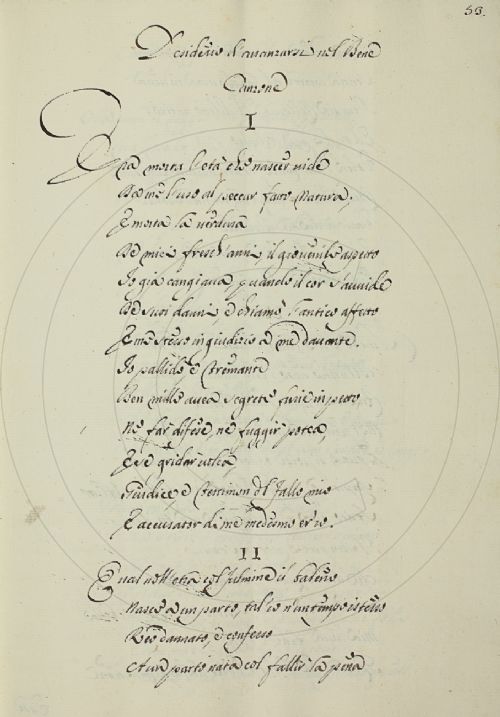 53.
Desiderio d'avanzarsi nel Bene
Canzone
I
Era morta l'età che nascer vide
Da me l'uso al peccar fatto Natura,
E morta la verdura
De miei fresch'anni, il giovenile aspetto
Io già cangiava, quando il cor s'avvide
De suoi danni, e chiamò l'antico affetto
E me stesso in giudizio a me davante.
Io pallido e tremante
Ben mille avea segrete furie in petto,
Nè far difese, nè fuggir potea,
E se gridar volea,
Giudice e testimon del fallo mio
E accusator di me medesmo er'io.
II
Qual nell'etra col fulmine il baleno
Nasce a un parto, tal io n'un tempo istesso
Reo dannato, e confesso
A un parto nata col fallir la pena